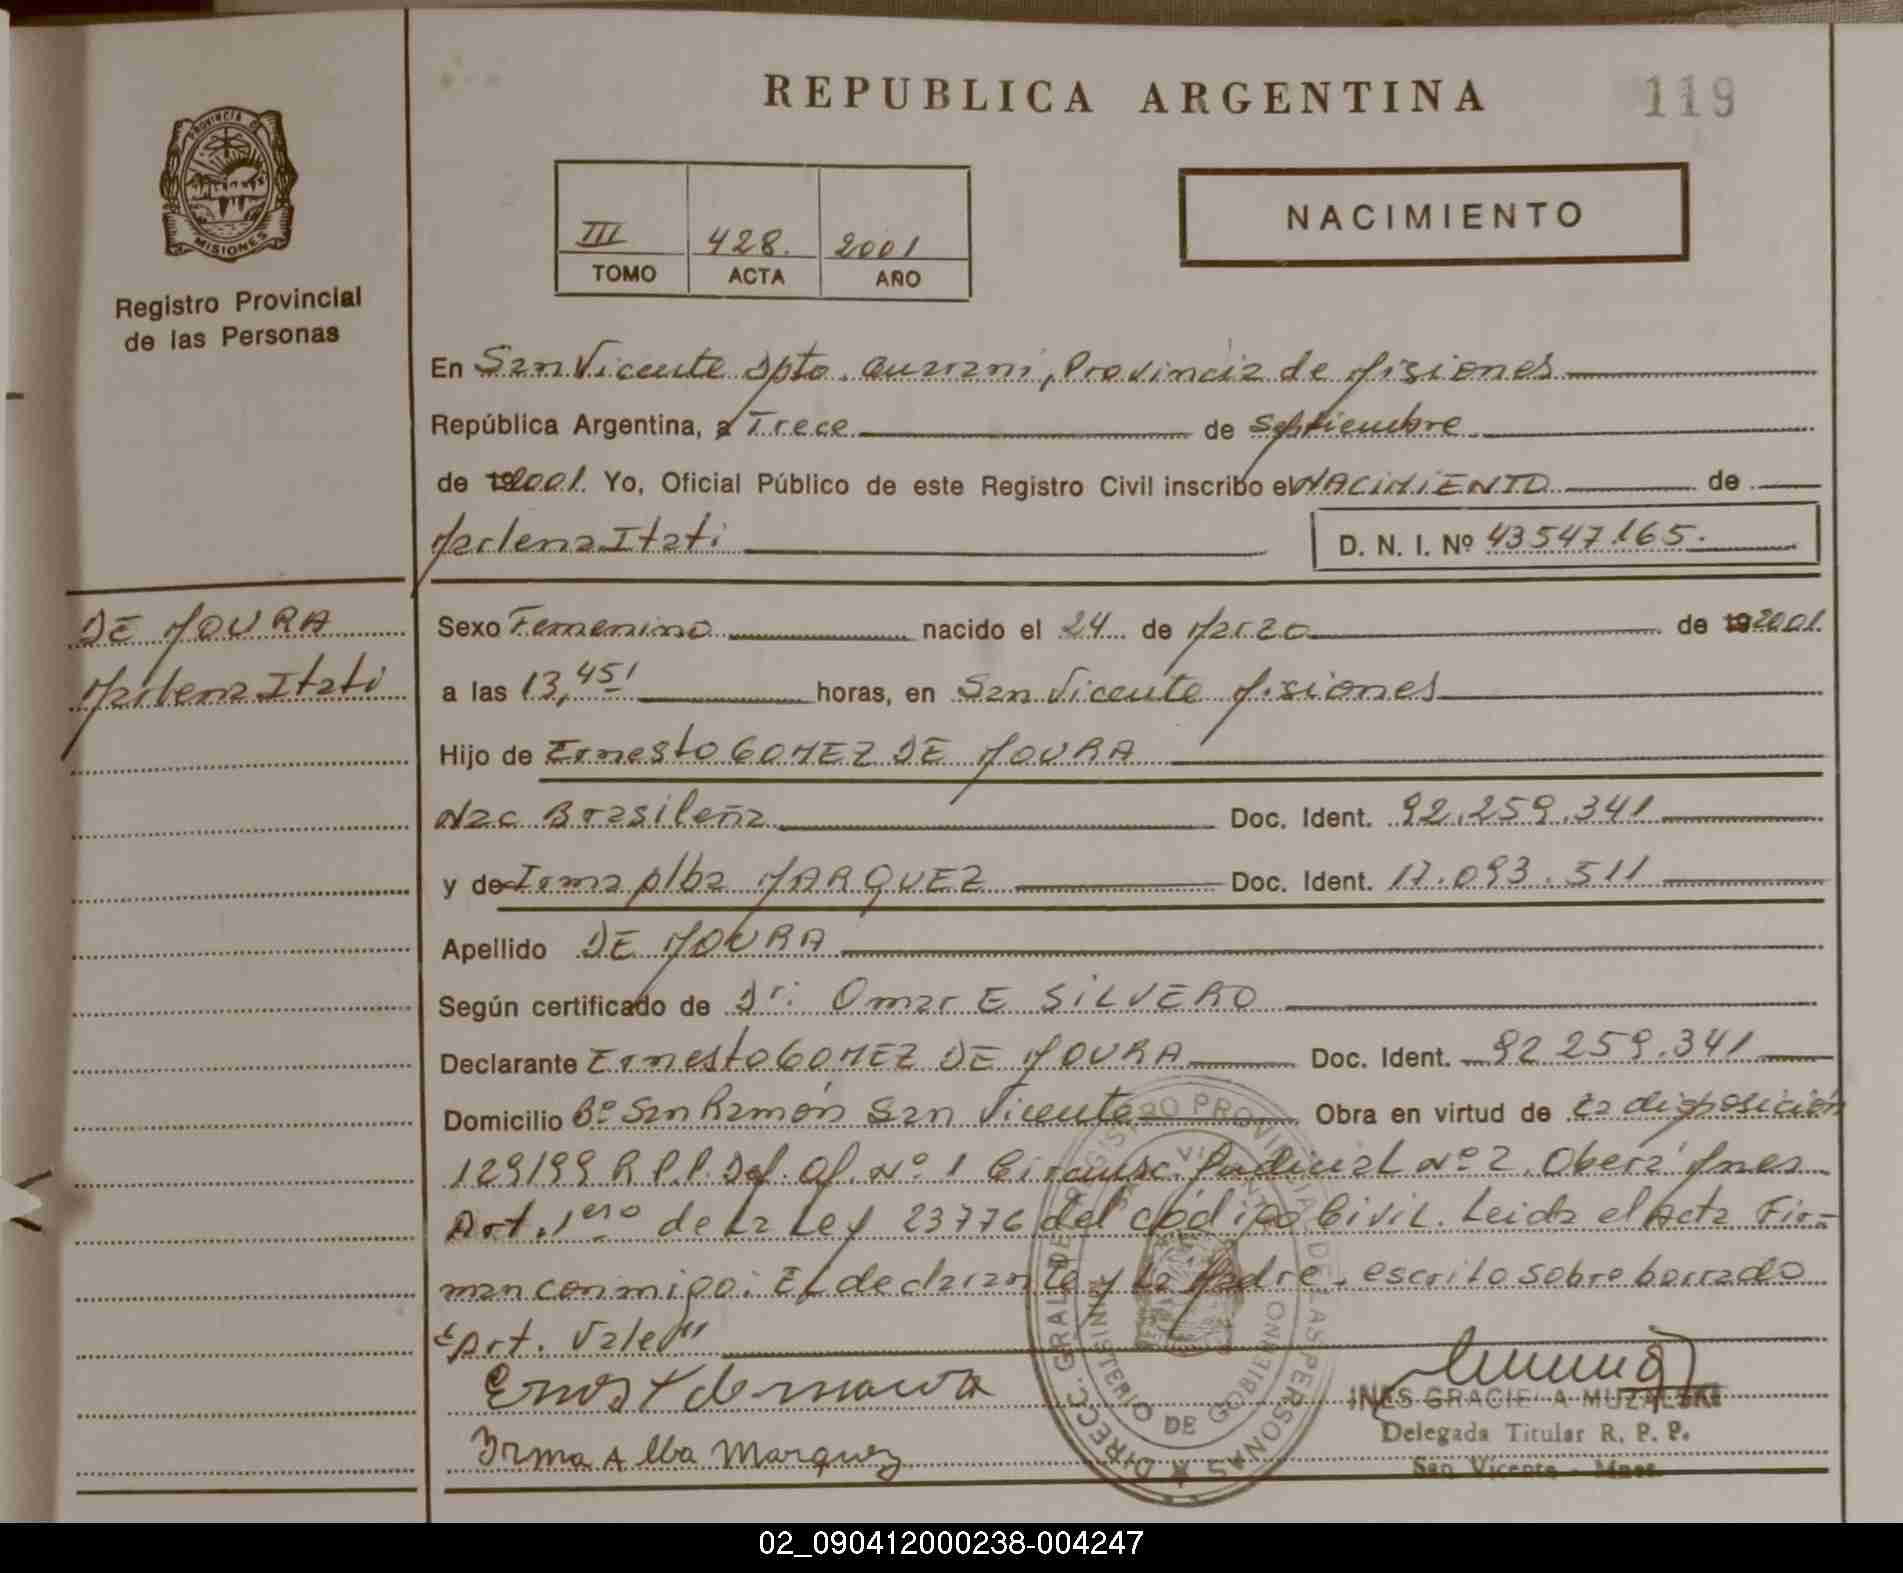 REPUBLICA ARGENTINA
119
PROVINCIA DE
MISIONES
Registro Provincial
de las Personas
III 428. 2001
TOMO ACTA AÑO
NACIMIENTO
En San Vicente Dpto. Guarani, Provincia de Misiones
República Argentina, a Trece de Septiembre
de 192001. Yo, Oficial Público de este Registro Civil inscribo el NACIMIENTO de
Marlena Itati D. N. I. Nº 43547165.
DE MOURA
Marlena Itati
Sexo Femenino nacido el 24 de Marzo de 192001.
a las 13,45' horas, en San Vicente Misiones
Hijo de Ernesto GOMEZ DE MOURA
Nac Brasileña Doc. Ident. 92.259.341
y de Irma Alba MARQUEZ Doc. Ident. 17.093.511
Apellido DE MOURA
Según certificado de Dr: Omar E SILVERO
Declarante Ernesto GOMEZ DE MOURA Doc. Ident. 92 259.341
Domicilio Bº San Ramón San Vicente Obra en virtud de La disposición
129199 R.P.P. Def. Of. Nº 1 Circunsc. Judicial Nº 2. Oberá Mnes
Art. 1ero de La Ley 23776 del código Civil. Leida el Acta Fir-
man conmigo: El declarante y La Madre. escrito sobre borrado
"Art. Vale"
Irma Alba Marquez
INES GRACIELA MUZALSKI
Delegada Titular R. P. P.
San Vicente - Mnes.
DIRECC. GRAL. DE REGISTRO PROVINCIAL DE LAS PERSONAS
MINISTERIO DE GOBIERNO
SAN VICENTE
02_090412000238-004247